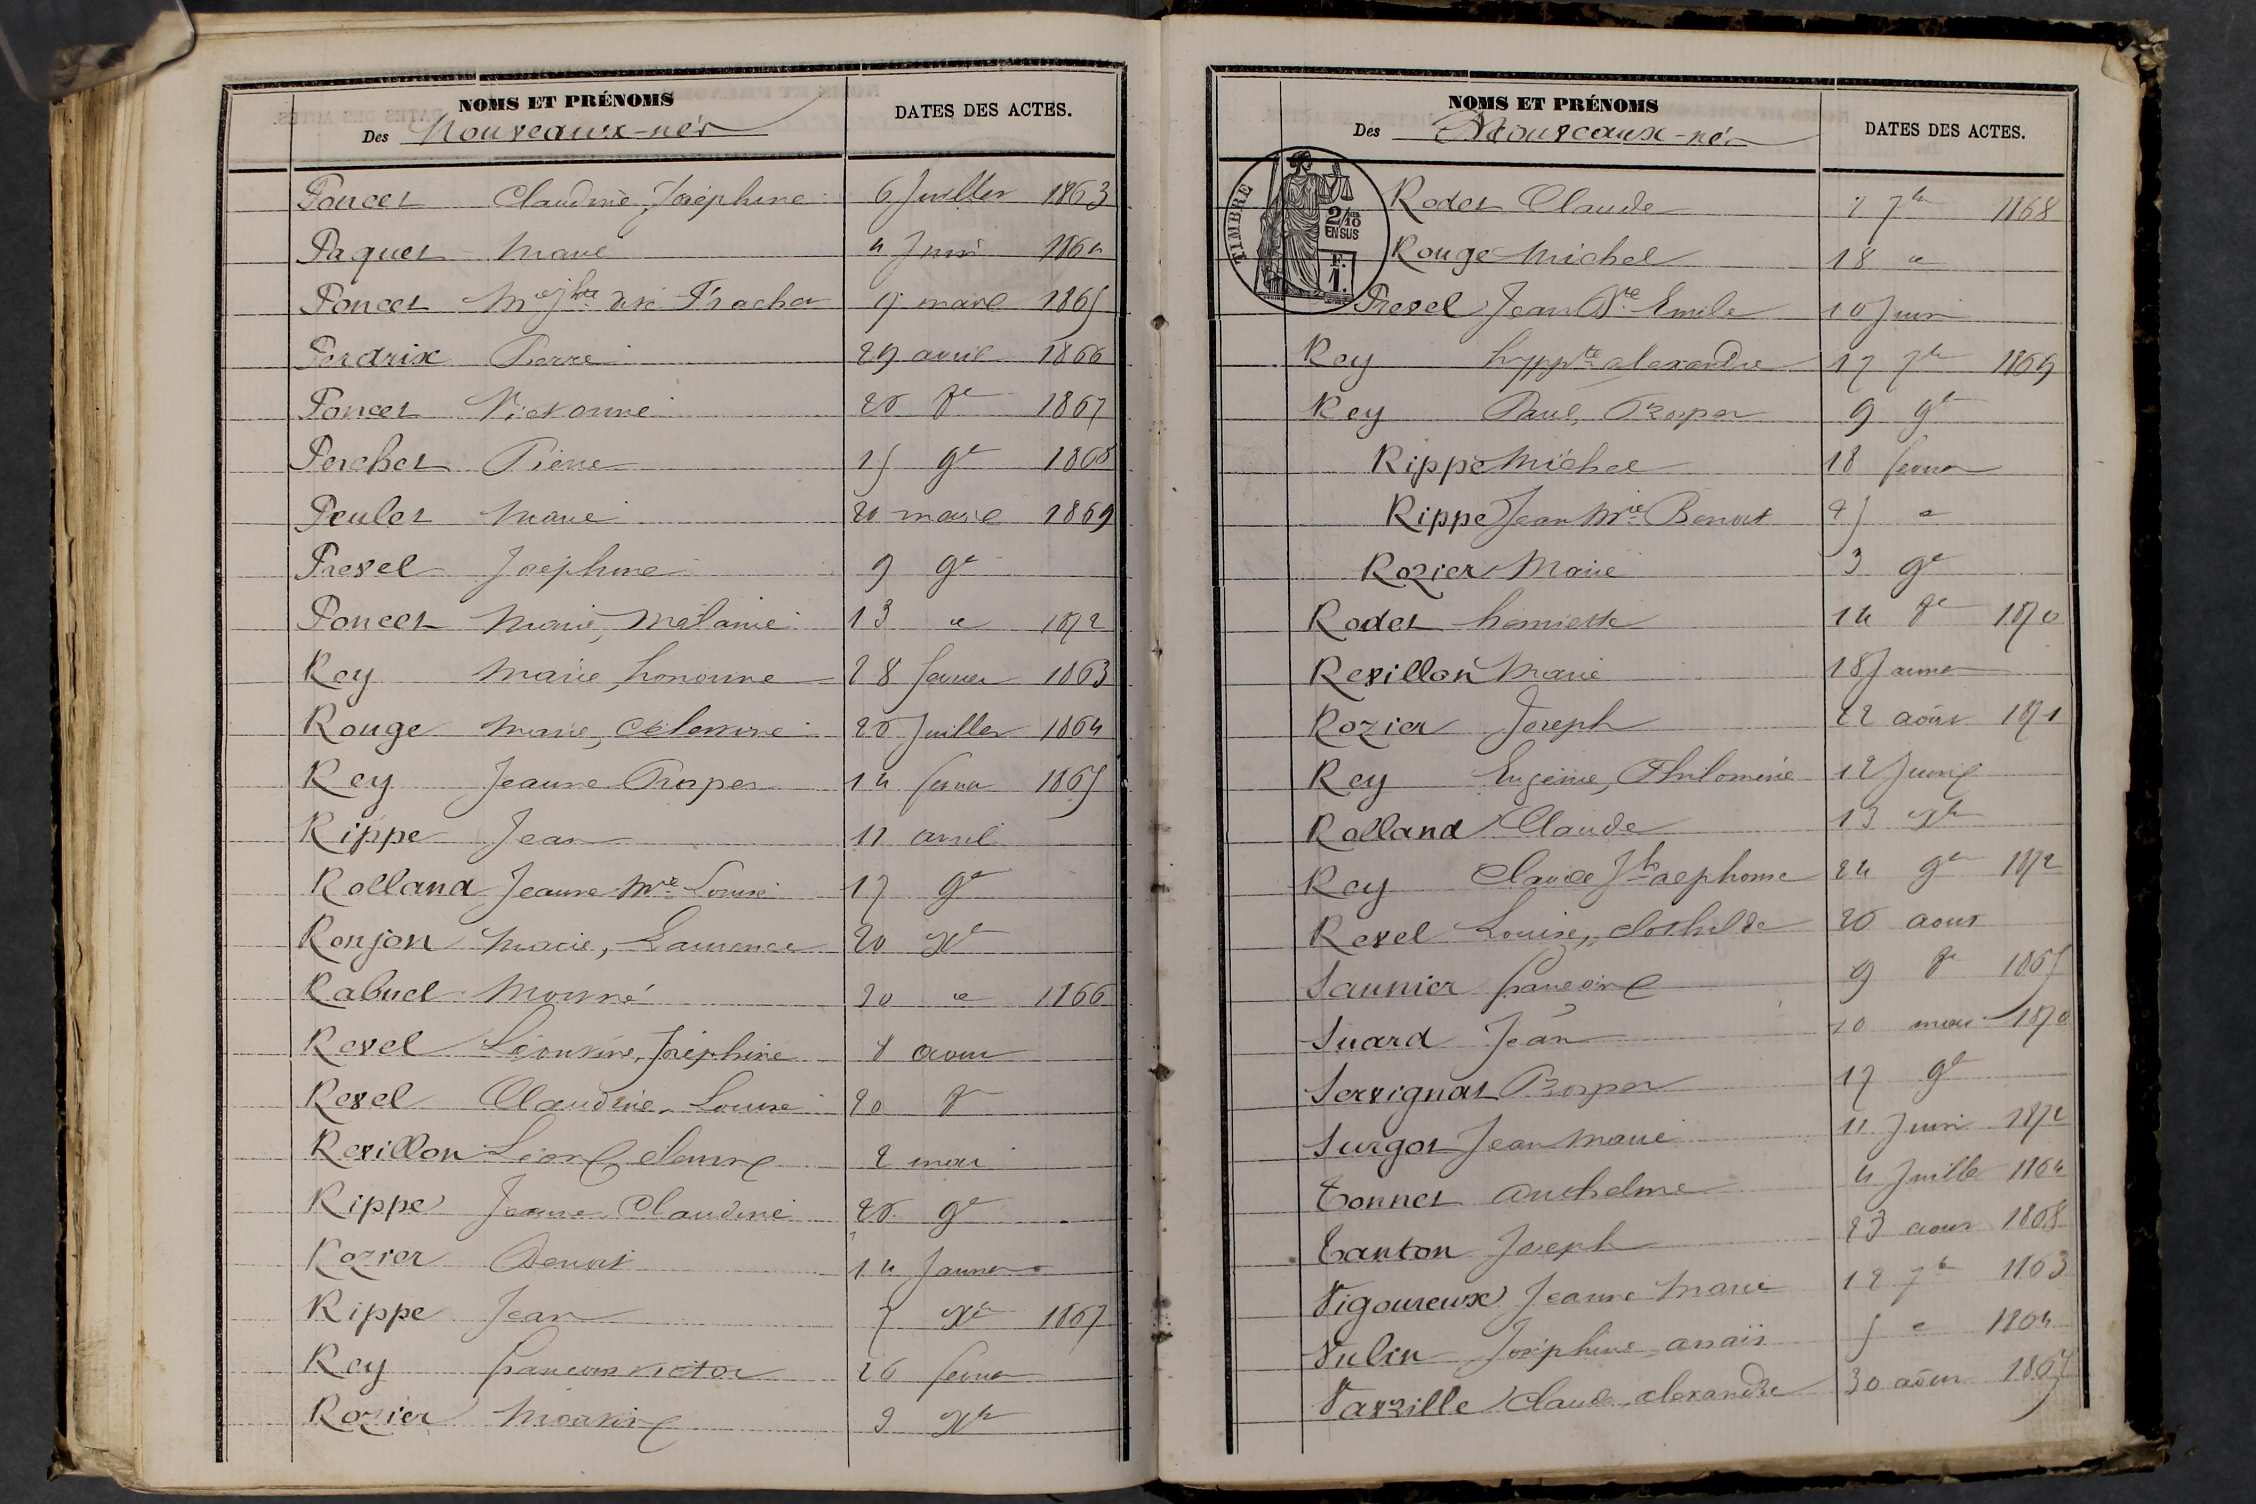 NOMS ET PRÉNOMS
Des Nouveaux-nés
DATES DES ACTES.
Poncet Claudine, Joséphine 6 Juillet 1863
Paquet Marie 4 Juin 1864
Poncet Mie Jhte dite Frachet 9 mars 1865
Perdrix Pierre 29 avril 1866
Poncet Victorine 26 8e 1867
Perchet Pierre 15 9e 1868
Peulet Marie 20 mars 1869
Prevel Joséphine 9 9e
Poncet Marie, Mélanie 13 " 1872
Rey Marie, honorine 28 février 1863
Rouge Marie, Célestine 26 Juillet 1864
Rey Jeanne Prosper 14 février 1865
Rippe Jean 11 avril
Rolland Jeanne Mie Louise 17 9e
Ronjon Marie, Laurence 20 Xe
Rabuel Mort né 20 " 1866
Revel Léontine, Joséphine 8 aout
Revel Claudine, Louise 20 8e
Revillon 2 mai
Rippe Jeanne Claudine 26 9e
Rozier Benoit 14 Janvier
Rippe Jean 7 Xe 1867
Rey francois victor 26 février
Rozier 9 Xe
NOMS ET PRÉNOMS
Des Nouveaux-nés
DATES DES ACTES.
TIMBRE
2/10 EN SUS
F.
1.
Rodet Claude 2 7e 1868
Rouge Michel 18 "
Prevel Jean Bte Emile 10 Juin
Rey hyppte alexandre 17 7e 1869
Rey Paul, Prosper 9 9e
Rippe Michel 18 février
Rippe Jean Mie Benoit 25 "
Rozier Marie 3 9e
Rodet henriette 14 8e 1870
Revillon Marie 18 Janvier
Rozier Joseph 22 août 1871
Rey Eugénie, Philomène 12 Juin
Rolland Claude 13 Xe
Rey Claude Jh alphonse 24 9e 1872
Revel Louise, clothilde 26 aout
Saunier francoise 9 8e 1865
Suard Jean 20 mai 1870
Servignat Prosper 17 9e
Surgot Jean Marie 11 Juin 1872
Tonnet anthelme 4 Juillet 1864
Tanton Joseph 23 aout 1868
Vigoureux Jeanne Marie 12 7e 1863
Vulin Joséphine anaïs 5 " 1864
Varzille Claude alexandre 30 août 1867